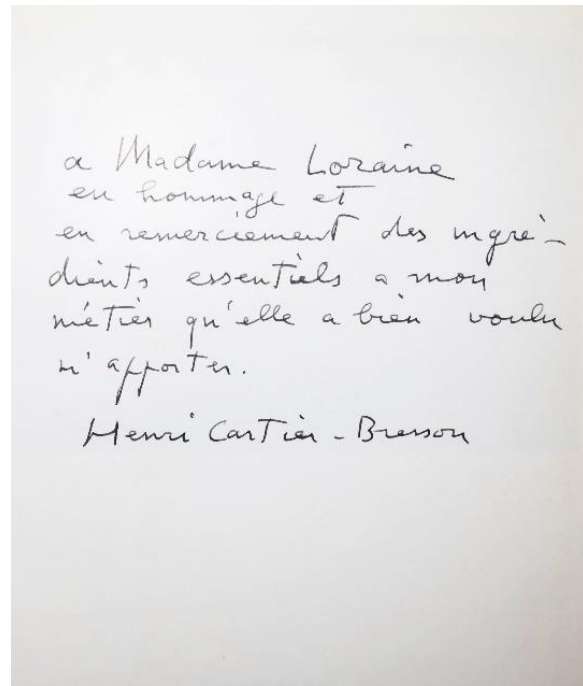 a Madame Loraine
en hommage et
en remerciement des ingré-
dients essentiels a mon
métier qu'elle a bien voulu
m'apporter.
Henri Cartier-Bresson